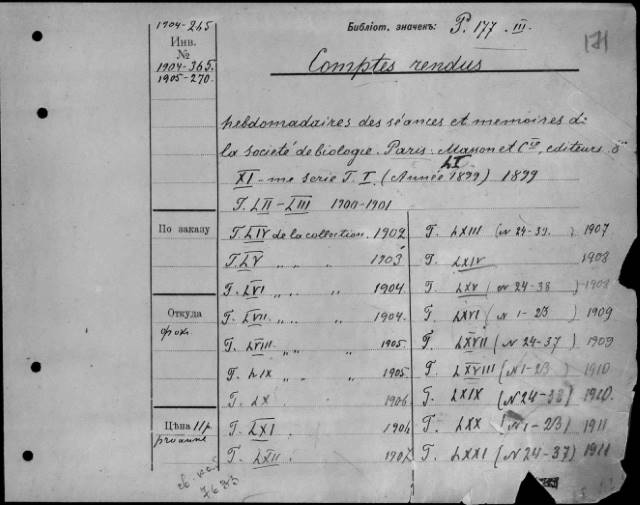 1904-245
Инв.
№
1904-365.
1905-270.
Библіот. значекъ: P. 177 III.
171
Comptes rendus
hebdomadaires des séances et memoires de
la société de biologie. Paris. Masson et Cie, editeurs
LI
XI-me serie T. I. (Année 1899) 1899
T. LII-LIII 1900-1901
По заказу
T. LIV de la collection. 1902
T. LV " " " 1903
T. LVI " " " 1904
Откуда
T. LVII " " " 1904.
T. LVIII " " 1905.
T. LIX " " " 1905.
T. LX . 1906
Цѣна
T. LXI . 1906
T. LXII . 1907
T. LXIII (N 24-39. ) 1907
T. LXIV 1908
T. LXV (N 24-38 ) 1908
T. LXVI (N 1-23) 1909
T. LXVII (N 24-37) 1909
T. LXVIII (N1-23) 1910
T. LXIX (N 24-38) 1910.
T. LXX (N 1-23) 1911
T. LXXI (N 24-37) 1911